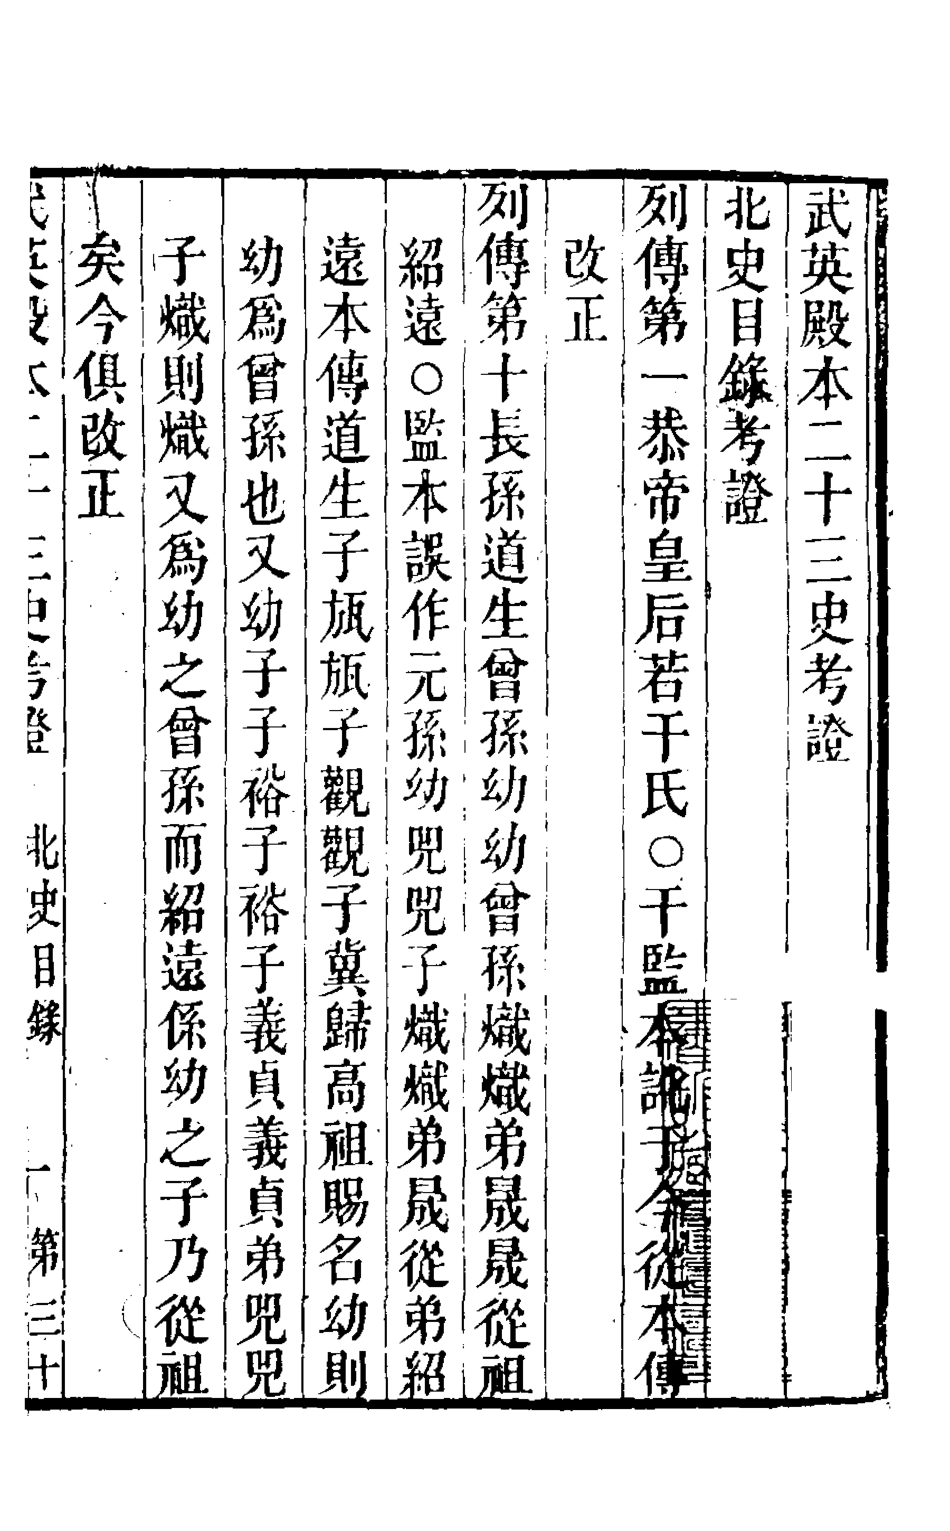 武英殿本二十三史考證
北史目錄考證
列傳第一恭帝皇后若干氏○干監本訛于今從本傳
改正
列傳第十長孫道生曾孫幼幼曾孫熾熾弟晟晟從祖
紹遠○監本誤作元孫幼兕兕子熾熾弟晟從弟紹
遠本傳道生子瓬瓬子觀觀子冀歸高祖賜名幼則
幼爲曾孫也又幼子子裕子裕子義貞義貞弟兕兕
子熾則熾又爲幼之曾孫而紹遠係幼之子乃從祖
矣今俱改正
武英殿本二十三史考證 北史目錄 一 第三十